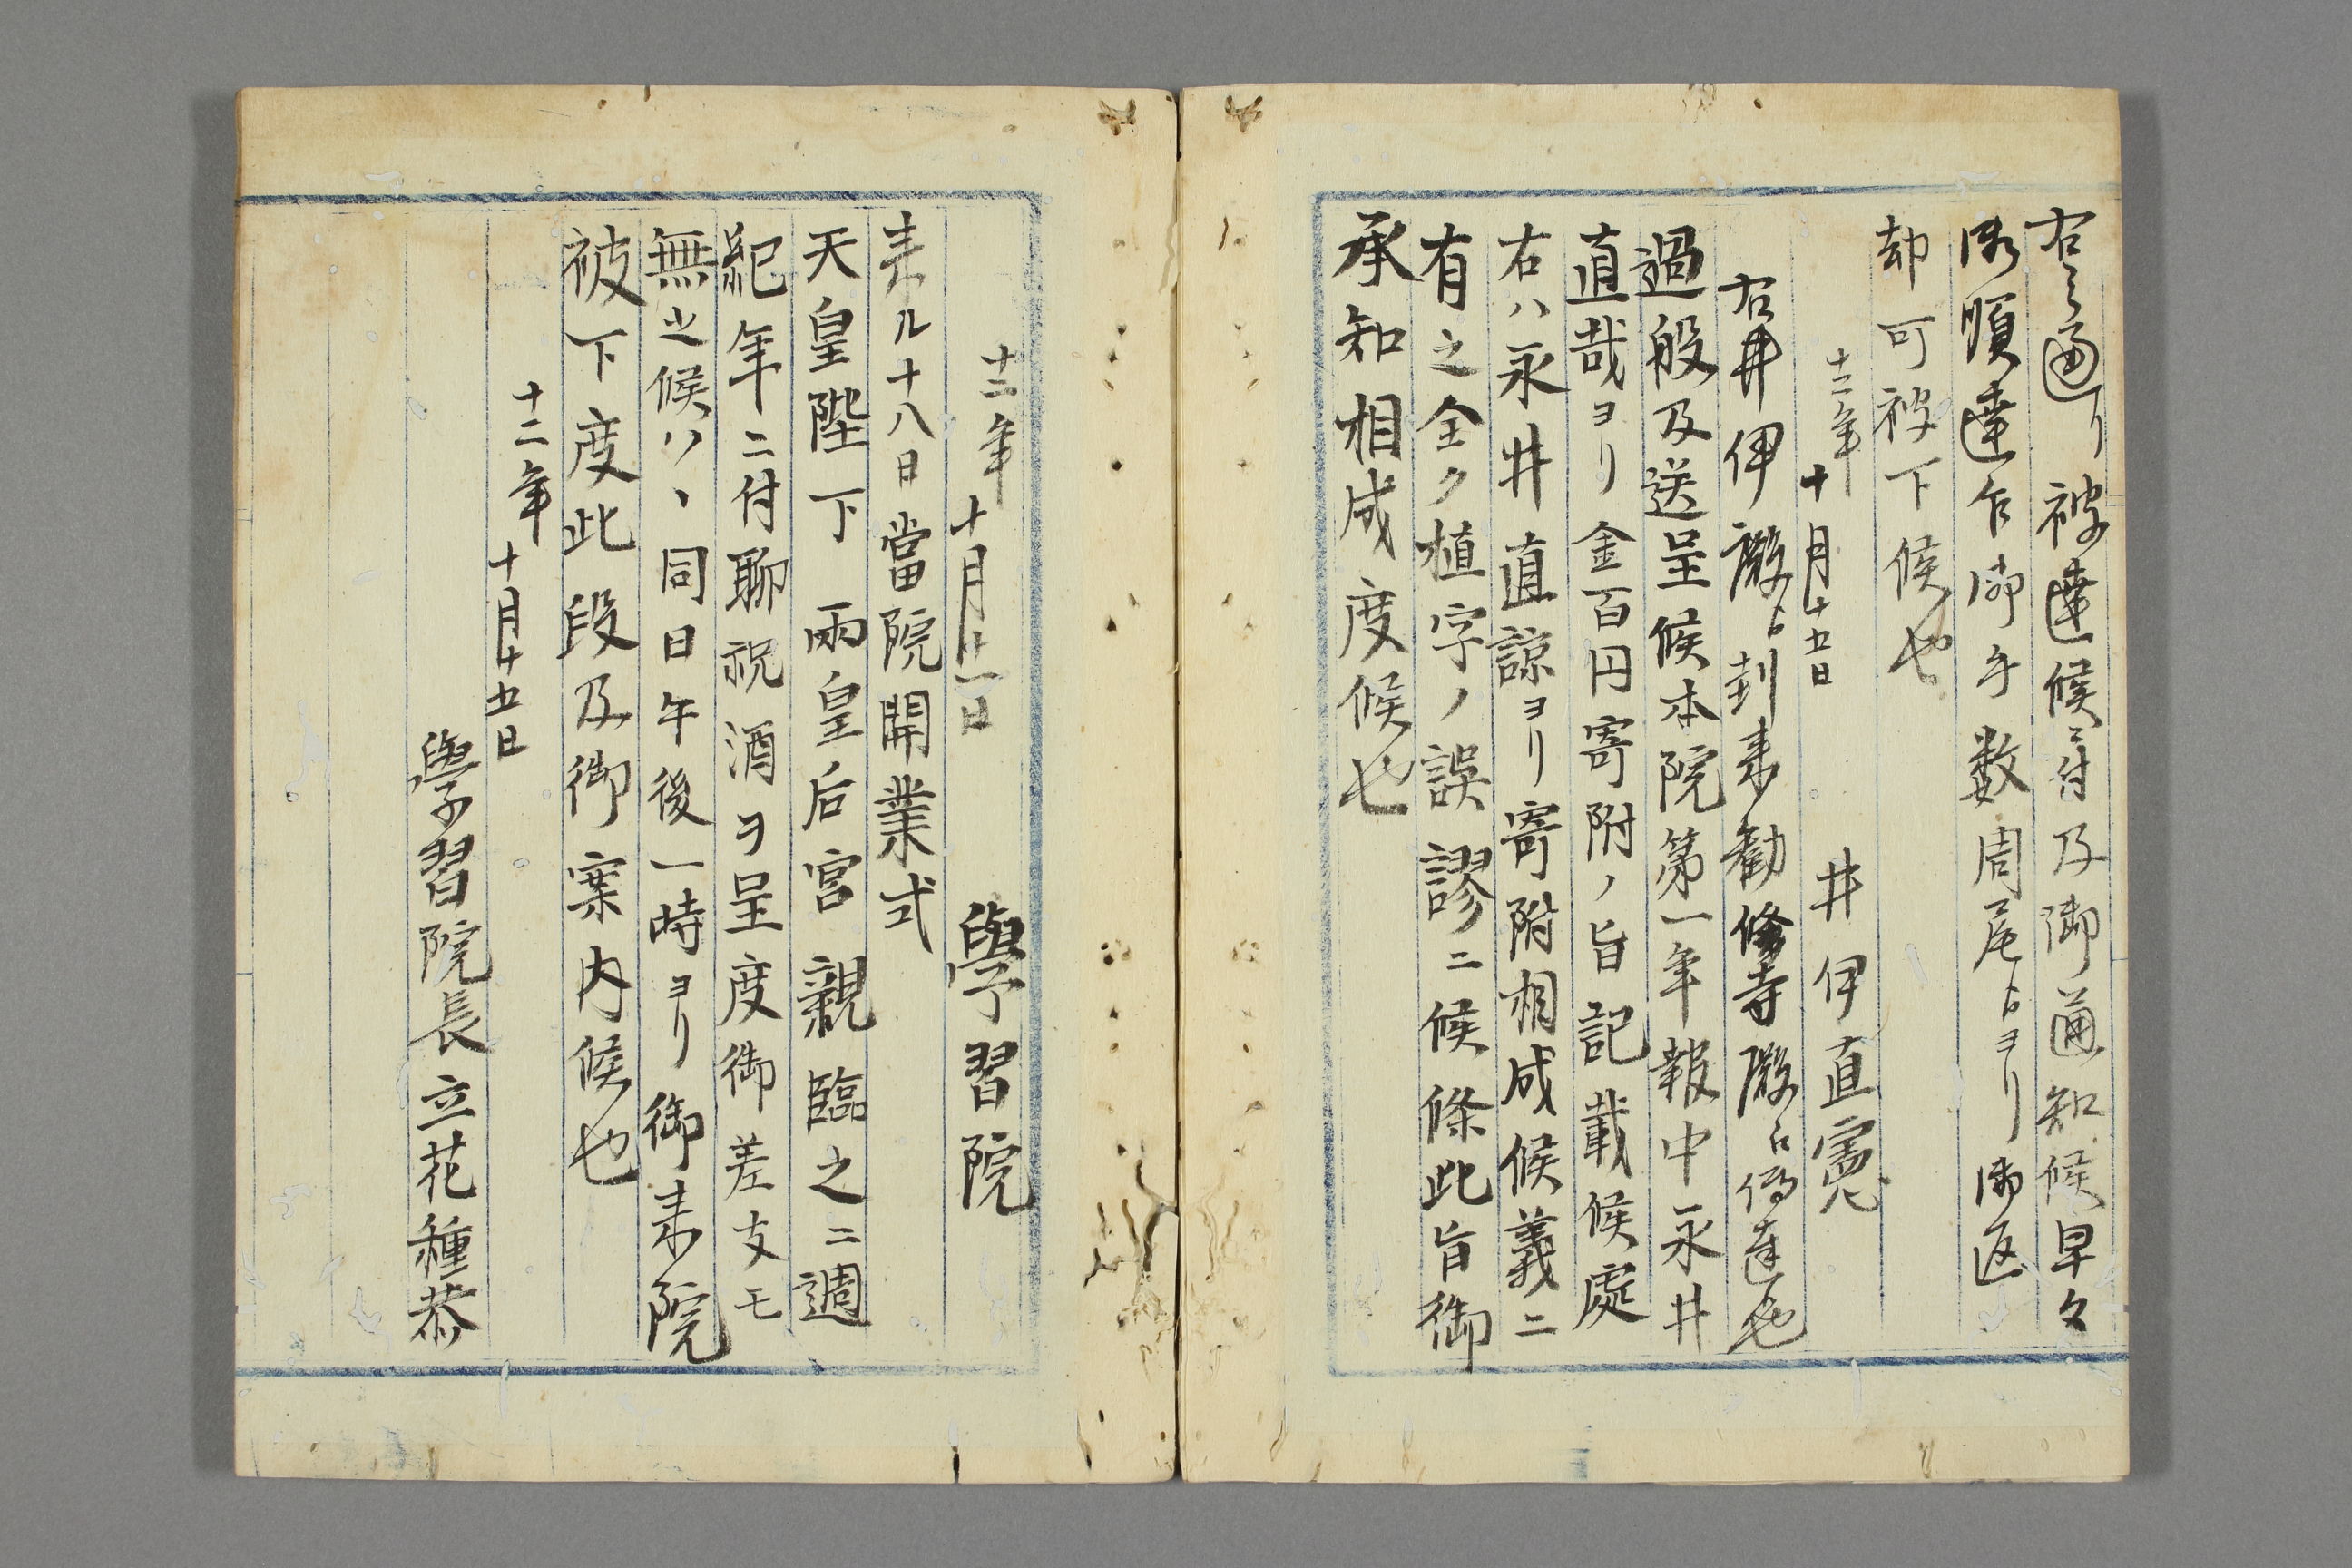 右之通リ被達候ニ付及御通知候早々
御順達乍御手数周尾ゟヨリ御返
却可被下候也
十二年十月十五日　井伊直憲
右井伊殿ゟ到来勧修寺殿江傳達也
過般及送呈候本院第一年報中永井
直哉ヨリ金百円寄附ノ旨記載候處
右ハ永井直諒ヨリ寄附相成候義ニ
有之全ク植字ノ誤謬ニ候條此旨御
承知相成度候也
十二年十月十一日　學習院
来ル十八日當院開業式
天皇陛下　兩皇后宮親臨之二週
紀年ニ付聊祝酒ヲ呈度御差支モ
無之候ハヽ同日午後一時ヨリ御来院
被下度此段及御案内候也
十二年十月十五日
學習院長立花種恭